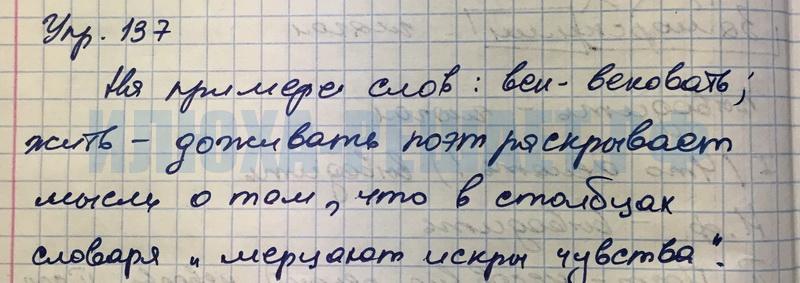 Упр. 137
На примере слов: век - вековать;
жить - доживать поэт раскрывает
мысль о том, что в столбцах
словаря "мерцают искры чувства".